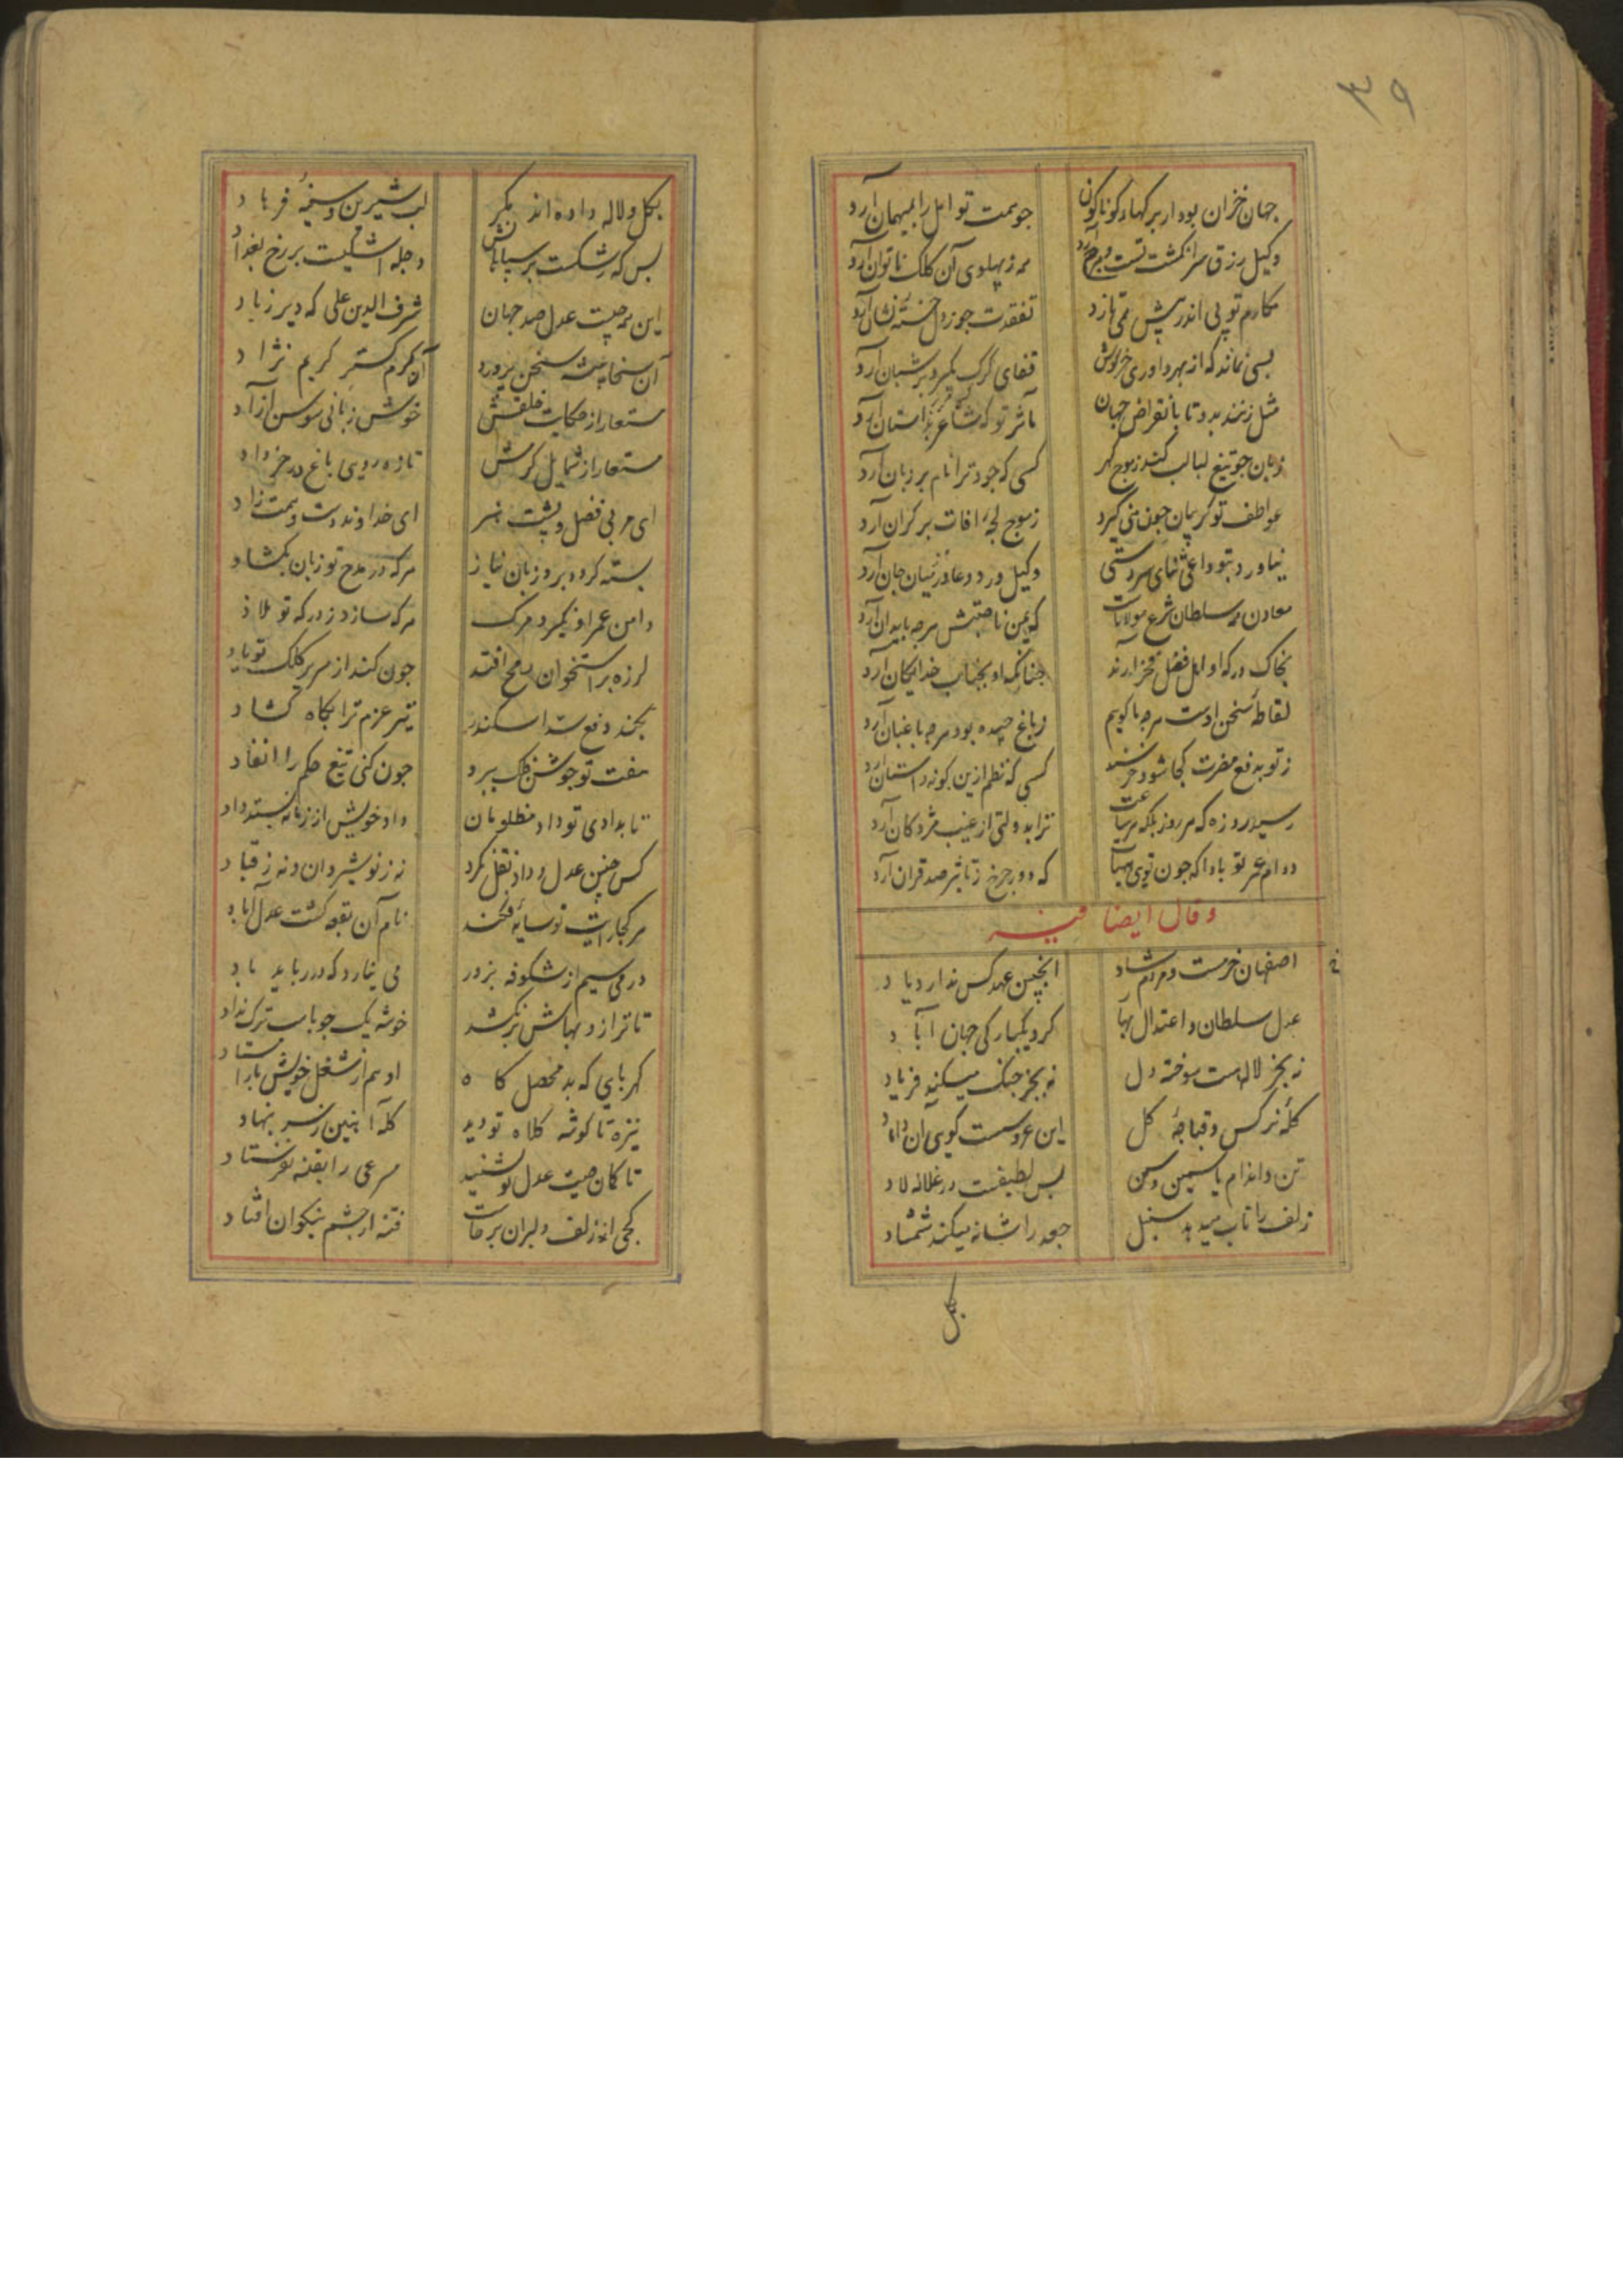 ۳۹
جهان خزان بود ار بر کهاد کوناکون جو همت تو امل را بمیهمان آرد
وکیل رزق سر انکشت تست همه ز پهلوی آن کلک ناتوان آرد
مکارم تو پی اندر پیش همی تازد تفقدت جو ز دل خسته نشان آرد
بسی نماند که از بهر داوری خرکوش قفای کرک بکیرد بر شبان آرد
مثل زنند بدو تا بانقراض جهان مآثر تو که شاعر بداستان آرد
زبان جو تیغ لبالب کند ز موج کهر کسی که جود ترا نام بر زبان آرد
عواطف تو کریمان جون منی کیرد ز موج لجهٔ افات بر کران آرد
نیاورد بتو داعی ثنای سردستی وکیل ورد دعا در میان جان آرد
معادن همه سلطان شرع مولانات که یمن ناصیتش هرجه باید آن آرد
بخاک درکه او اهل فضل فخر آرند جنانکه او بجناب خدایکان آرد
لقاطهٔ سخن اوست هرجه ما کویم ز باغ جیده بود هرجه باغبان آرد
ز تو بدفع مضرت کجا شود خرسند کسی که نظم ازین کونه داستان آرد
رسید روزه که هر روز بلکه هر ساعت ترا بدولتی از غیب مژدکان آرد
دوام عمر تو بادا که جون تویی که دور جرخ ز تاثیر صد قران آرد
وقال ایضا فیه
اصفهان خرمست و مردم شاد اینچنین عهد کس ندارد یاد
عدل سلطان و اعتدال بهار کرد یکبارکی جهان آباد
نه بجز لاله هست سوخته دل نه بجز جنک میکند فریاد
کلهٔ نرکس و قباجهٔ کل این عروسست کویی آن داماد
تن و اندام یاسمین و سمن بس لطیفست در غلاله لاد
زلف را تاب میدهد سنبل جعد را شانه میکند شمشاد
بکل
بکل و لاله داده اند بکر لب شیرین و سینهٔ فرهاد
بس که رشکست بر سپاهانش دجله اشکیست بر رخ بغداد
این همه جیست عدل صدر جهان شرف الدین علی که دیر زیاد
آن سخا پیشه سخن پرورد آن کرم کستر کریم نژاد
مستعار از حکایت خلقش خوش زبانی سوسن آزاد
مستعار از شمایل کرمش تازه رویی باغ در خرداد
ای مربی فضل و پشت هنر ای خداوند دست و همت راد
بسته کردد برو زبان نیاز هرکه در مدح تو زبان بکشاد
دامن عمر او نکیرد مرک هرکه سازد ز درکه تو ملاذ
لرزه بر استخوان رمح افتد جون کند از صریر کلک تو یاد
بجند دفع سد اسکندر تیر عزم ترا بکاه کشاد
هفت تو جوشن فلک ببرد جون کنی تیغ حکم را انفاد
تا بدادی تو داد مظلومان داد خویش از زمانه بستد داد
کس جنین عدل و داد نقل نکرد نه ز نوشیروان و نه ز قباد
هر کجا رایت تو سایه فکند نام آن بقعه کشت عدل آباد
درمی سیم از شکوفه بزور می نیارد که در رباید باد
تا ترازو بهاش برنکشد خوشه یک جو بهاب ترک نداد
کهربایی که بد محصل کاه او هم از شغل خویش باز استاد
نیزه تا کوشه کلاه تو دید کله آهنین ز سر بنهاد
تا کمان صیت عدل تو بشنید سرعی را بفتنه نفرستاد
کجی اندر زلف دلبران برخاست فتنه از جشم نیکوان افتاد